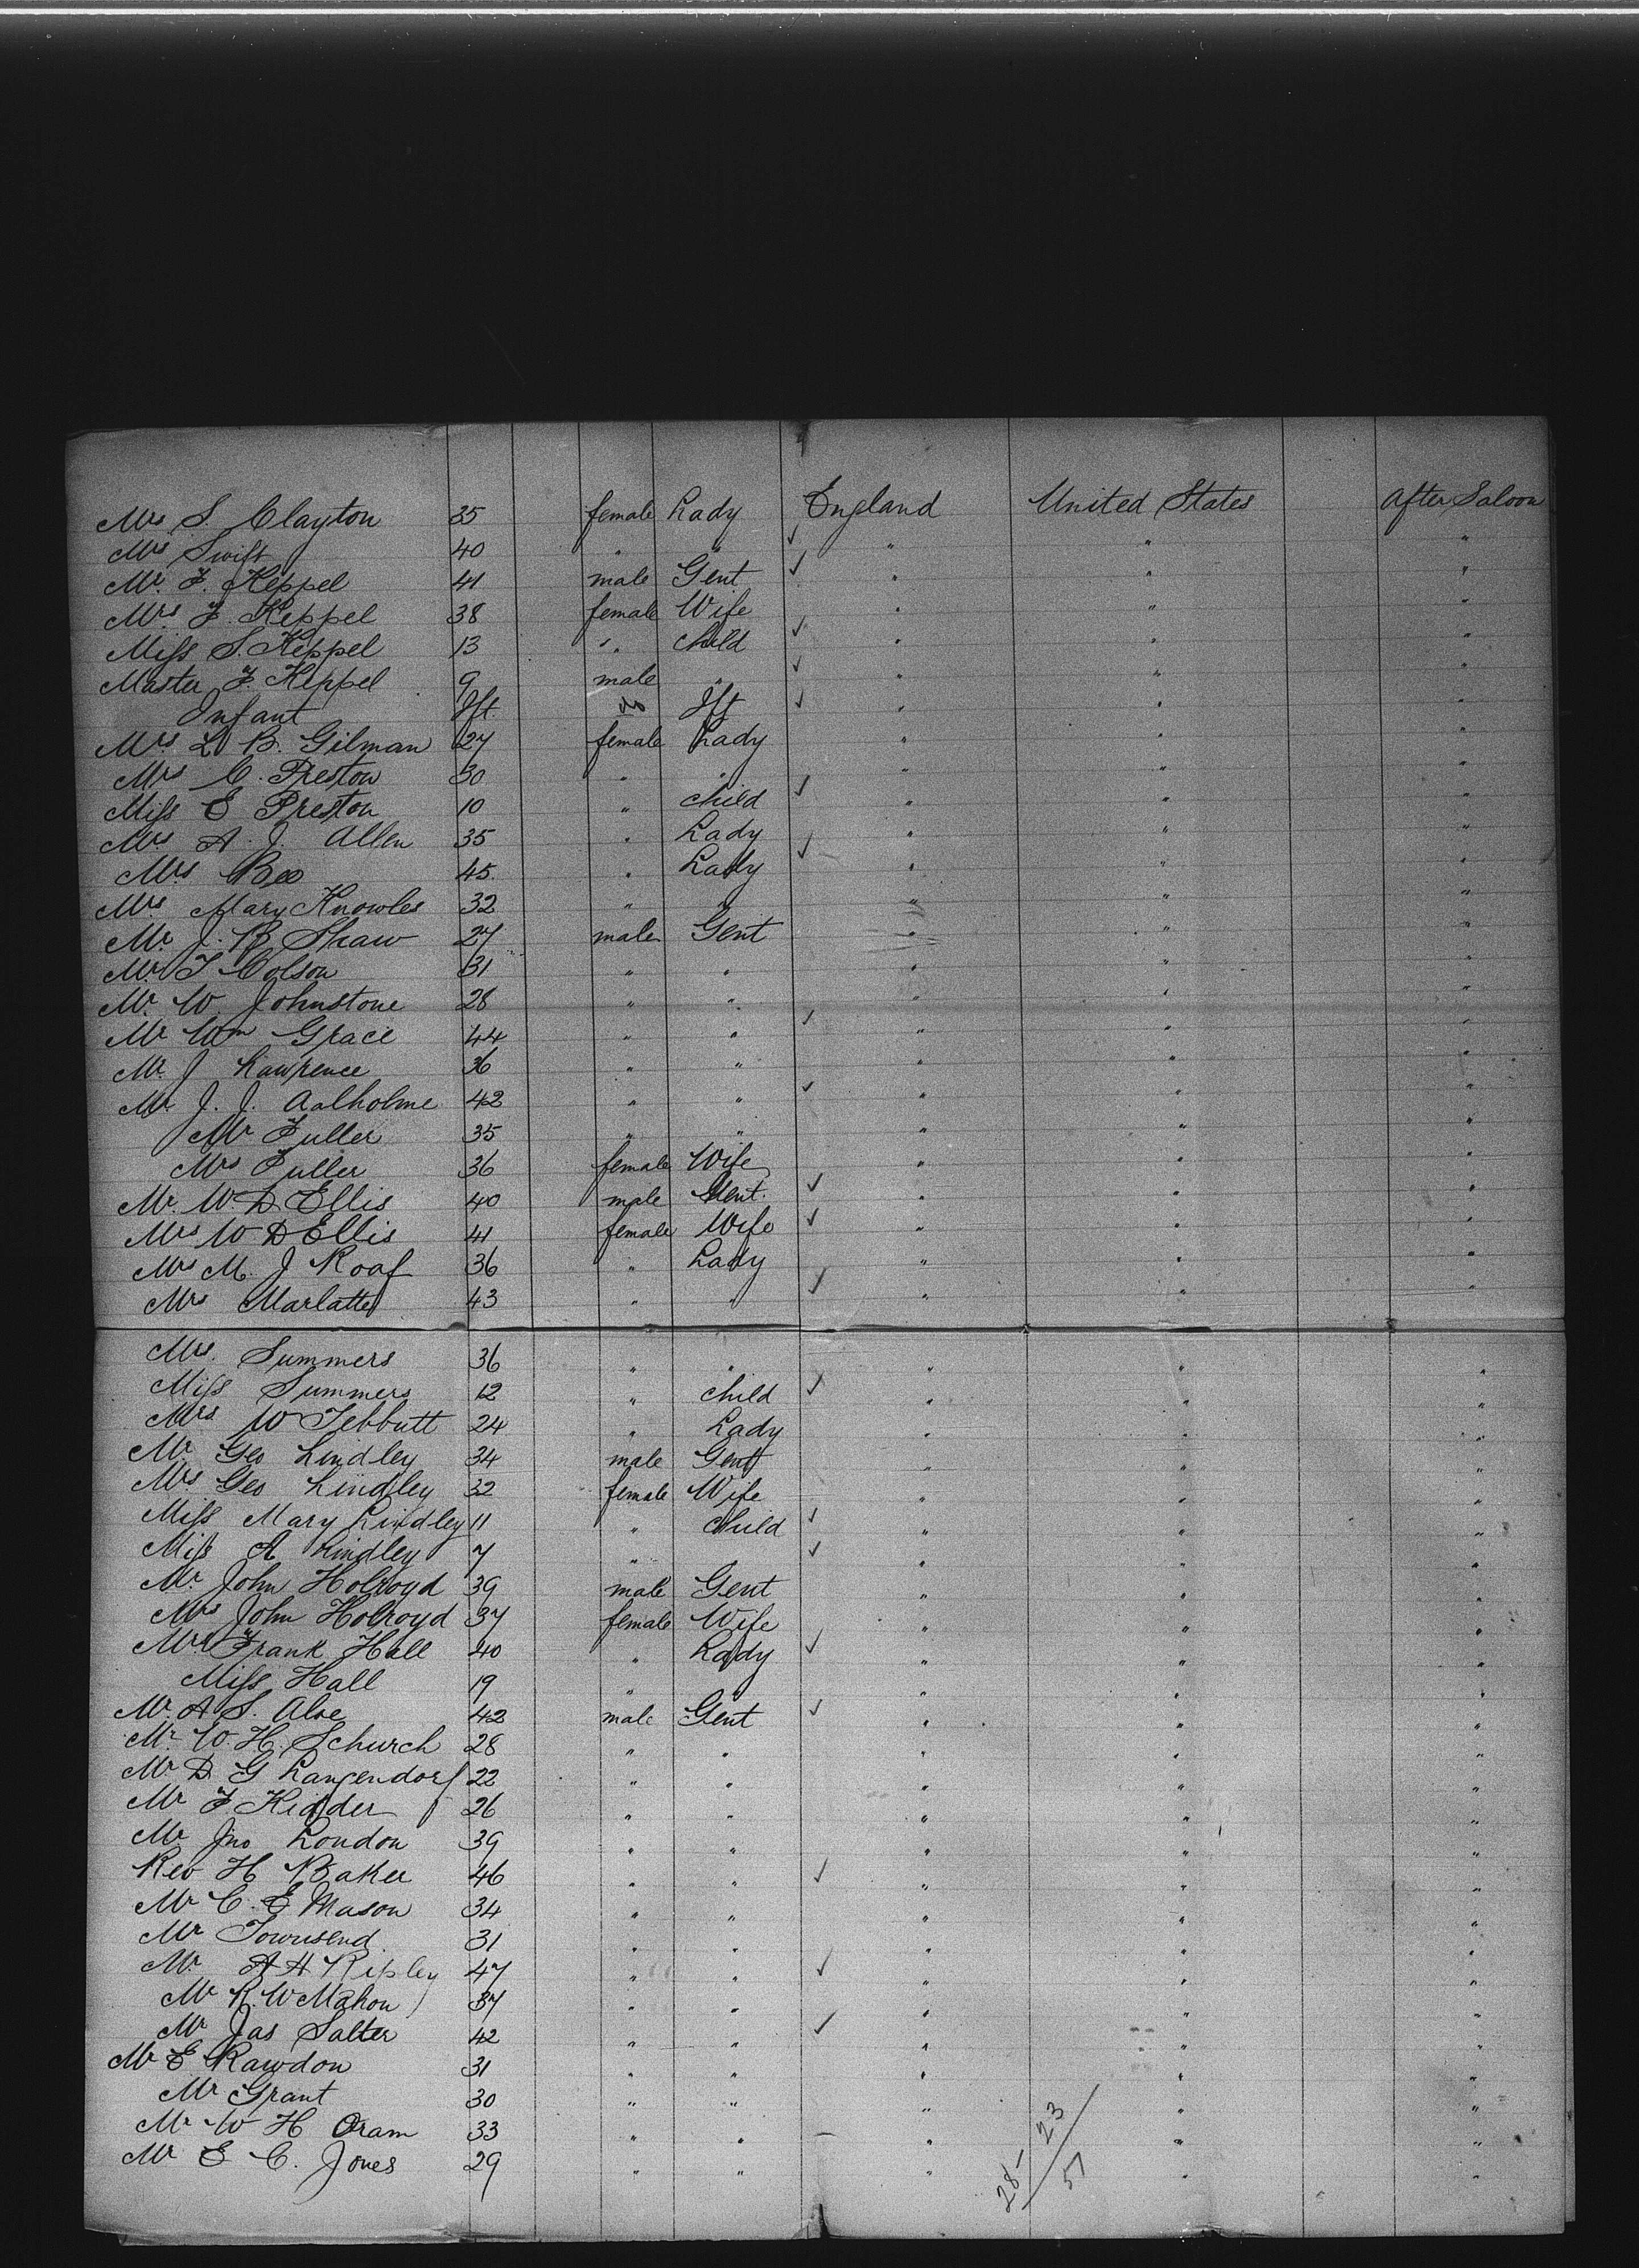 Mrs S. Clayton 35 female Lady England United States After Saloon
Mrs Swift 40 " " " " "
Mr. F. Keppel 41 male Gent " " "
Mrs F. Keppel 38 female Wife " " "
Miss S. Keppel 13 " child " " "
Master F. Keppel 9 male " " " "
Infant Ift. do Ift " " "
Mrs L. B. Gilman 27 female Lady " " "
Mrs C. Preston 30 " " " " "
Miss E Preston 10 " child " " "
Mrs A. J. Allen 35 " Lady " " "
Mrs 45. " Lady " " "
Mrs Mary Knowles 32 " " " " "
Mr J. B. Shaw 27 male Gent " " "
Mr. T Colson 31 " " " " "
Mr. W. Johnstone 28 " " " " "
Mr Wm Grace 44 " " " " "
Mr. J Lawrence 36 " " " " "
Mr J. J. Aalholme 42 " " " " "
Mr Fuller 35 " " " " "
Mrs Fuller 36 female Wife " " "
Mr. W. D. Ellis 40 male Gent. " " "
Mrs W D Ellis 41 female Wife " " "
Mrs M. J Roaf 36 " Lady " " "
Mrs Marlatte 43 " " " " "
Mrs. Summers 36 " " " " "
Miss Summers 12 " child " " "
Mrs W Tebbutt 24 " Lady " " "
Mr Geo Lindley 34 male Gent " " "
Mrs Geo Lindley 32 female Wife " " "
Miss Mary Lindley 11 " child " " "
Miss A Lindley 7 " " " "
Mr John Holroyd 39 male Gent " " "
Mrs John Holroyd 37 female Wife " " "
Mrs Frank Hall 40 " Lady " " "
Miss Hall 19 " " " " "
Mr. A. S. Aloe 42 male Gent " " "
Mr W. H. Schurch 28 " " " " "
Mr D G Langendorf 22 " " " " "
Mr F Kidder 26 " " " " "
Mr Jno London 39 " " " " "
Rev H Baker 46 " " " " "
Mr C. E Mason 34 " " " " "
Mr Townsend 31 " " " " "
Mr. A H Ripley 47 " " " " "
Mr R. W Mahon 37 " " " " "
Mr Jas Salter 42 " " " " "
Mr E Rawdon 31 " " " " "
Mr Grant 30 " " " " "
Mr W H Oram 33 " " " " "
Mr E C. Jones 29 " " " " "
28 - 23
51